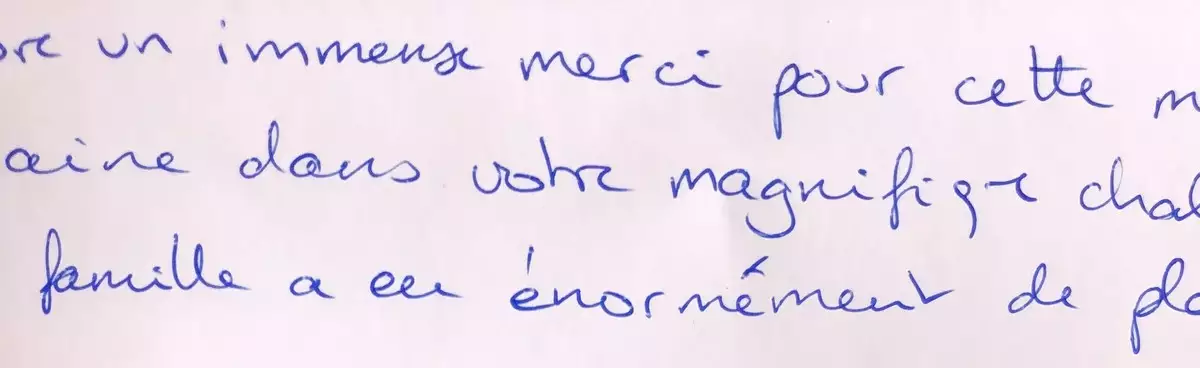 ore un immense merci pour cette m
aine dans votre magnifique chal
famille a eu énormément de pla